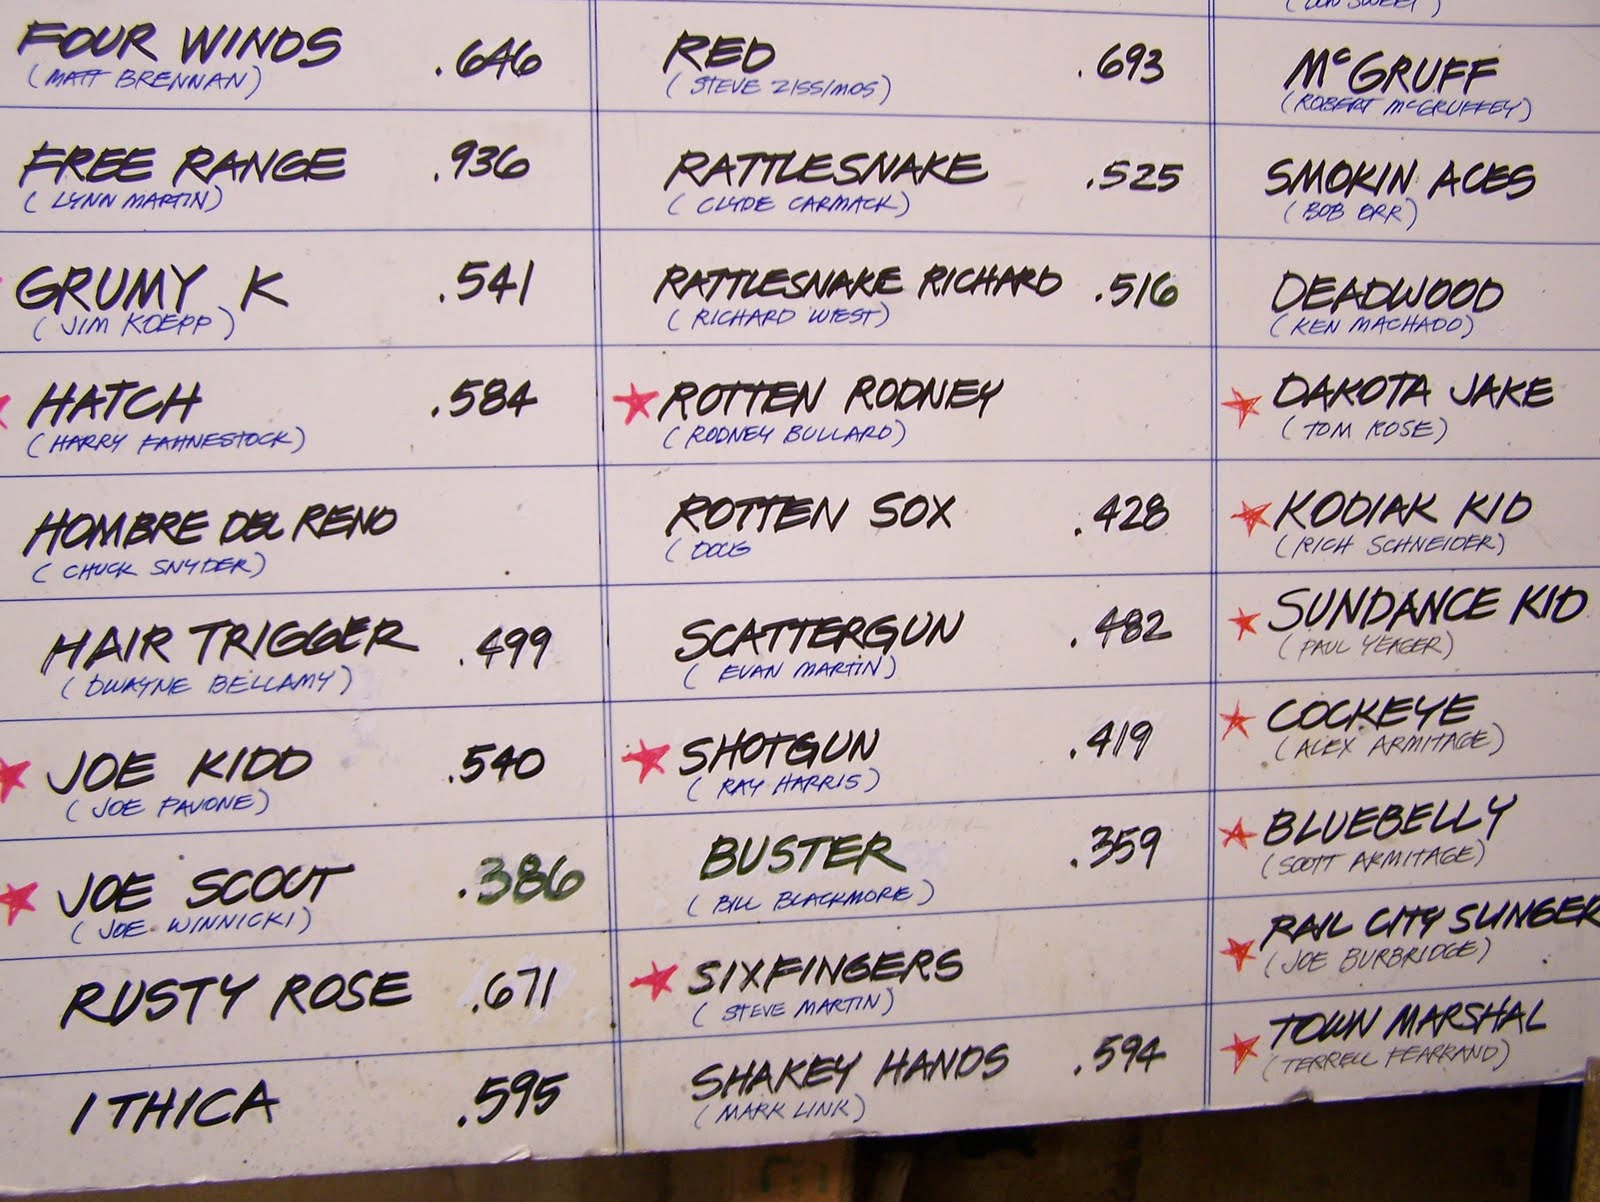 FOUR WINDS .646
(MATT BRENNAN)
FREE RANGE .936
(LYNN MARTIN)
GRUMY K .541
(JIM KOEPP)
HATCH .584
(HARRY FAHNESTOCK)
HOMBRE DEL RENO
(CHUCK SNYDER)
HAIR TRIGGER .499
(DWAYNE BELLAMY)
JOE KIDD .540
(JOE PAVONE)
JOE SCOUT .386
(JOE WINNICKI)
RUSTY ROSE .671
ITHICA .595
RED .693
(STEVE ZISS/MOS)
RATTLESNAKE .525
(CLYDE CARMACK)
RATTLESNAKE RICHARD .516
(RICHARD WEST)
ROTTEN RODNEY
(RODNEY BULLARD)
ROTTEN SOX .428
(DOUG
SCATTERGUN .482
(EVAN MARTIN)
SHOTGUN .419
(RAY HARRIS)
BUSTER .359
(BILL BLACKMORE)
SIXFINGERS
(STEVE MARTIN)
SHAKEY HANDS .594
(MARK LINK)
SWEET)
McGRUFF
(ROBERT McGRUFFEY)
SMOKIN ACES
(BOB ORR)
DEADWOOD
(KEN MACHADO)
DAKOTA JAKE
(TOM ROSE)
KODIAK KID
(RICH SCHNEIDER)
SUNDANCE KID
(PAUL YEAGER)
COCKEYE
(ALEX ARMITAGE)
BLUEBELLY
(SCOTT ARMITAGE)
RAIL CITY SLINGER
(JOE BURBRIDGE)
TOWN MARSHAL
(TERRELL FEARRAND)